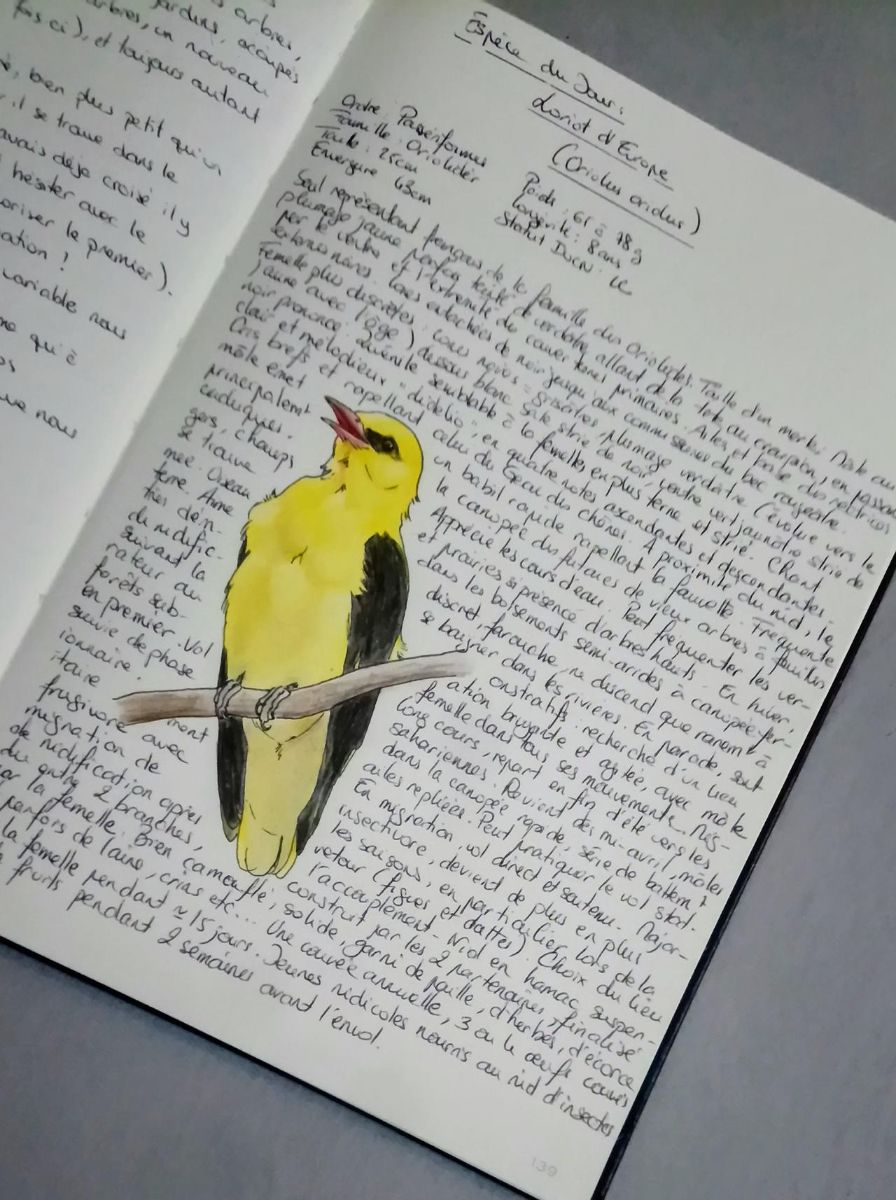 arbres,
jardins, occupés
arbres, un nouveau
fois ci), et toujours autant
bien plus petit qu'un
il se trouve dans le
avais déjà croisé il y
hésiter avec le
oriser le premier).
ation ?
variable nous
qui è
nous
Espèce du Jour :
Loriot d'Europe
(Oriolus oriolus)
Ordre : Passériformes
Famille : Oriolidés
Taille : 25cm
Envergure 45cm
Poids : 65 à 78g
Longévité : 8 ans
Statut IUCN : LC
Seul représentant français de la famille des Oriolidés. Taille d'un merle. Mâle au
plumage jaune parfois teinté de verdâtre allant de la tête au croupion, en passant
par le ventre et l'extrémité des couvertures primaires. Ailes et base des rectrices
externes noires. Lores entachées de noir jusqu'aux commissures du bec rougeâtre.
Femelle plus discrète : lores noires-grisâtres, plumage verdâtre (évolue vers le
jaune avec l'âge) dessous blanc sale strié de noir, ventre vert jaunâtre strié de
noir prononcé. Juvénile semblable à la femelle en plus terne et strié. Chant
clair et mélodieux "didelio", en quatre notes ascendantes et descendantes.
Cris brefs et rapellant celui du Geai du chênes. A proximité du nid, le
mâle émet un babil rapide rapellant la fauvette. Fréquente
principalemt la canopée des futaies de vieux arbres à feuilles
caduques. Apprécie les cours d'eau. Peut fréquenter les ver-
gers, champs et prairies si présence d'arbres hauts. En hiver,
se trouve dans les boisements semi-arides à canopée fer-
mée. Oiseau discret, farouche, ne descend que raremt à
terre. Aime se baigner dans les rivières. En parade, sont
très démonstratifs : recherche d'un lieu
de nidification bruyante et agitée, avec mâle
suivant la femelle dans tous ses mouvements. Mig-
rateur au long cours, repart en fin d'été vers les
forêts subsahariennes. Revient dès mi-avril, mâles
en premier. Vol dans la canopée rapide, série de battemt
suivie de phase ailes repliées. Peut pratiquer le vol stat-
ionnaire. En migration, vol direct et soutenu. Major-
itairement insectivore, devient de plus en plus
frugivore avec les saisons, en particulier lors de la
migration de retour (figues et dattes). Choix du lieu
de nidification après l'accouplement. Nid en hamac suspen-
du entre 2 branches, construit par les 2 partenaires, finalisé
par la femelle. Bien camouflé, solide, garni de paille, d'herbes, d'écorce
parfois de laine, crins etc... Une couvée annuelle, 3 ou 4 œufs couvés
la femelle pendant ≈ 15 jours. Jeunes nidicoles nourris au nid d'insectes
fruits pendant 2 semaines avant l'envol.
139